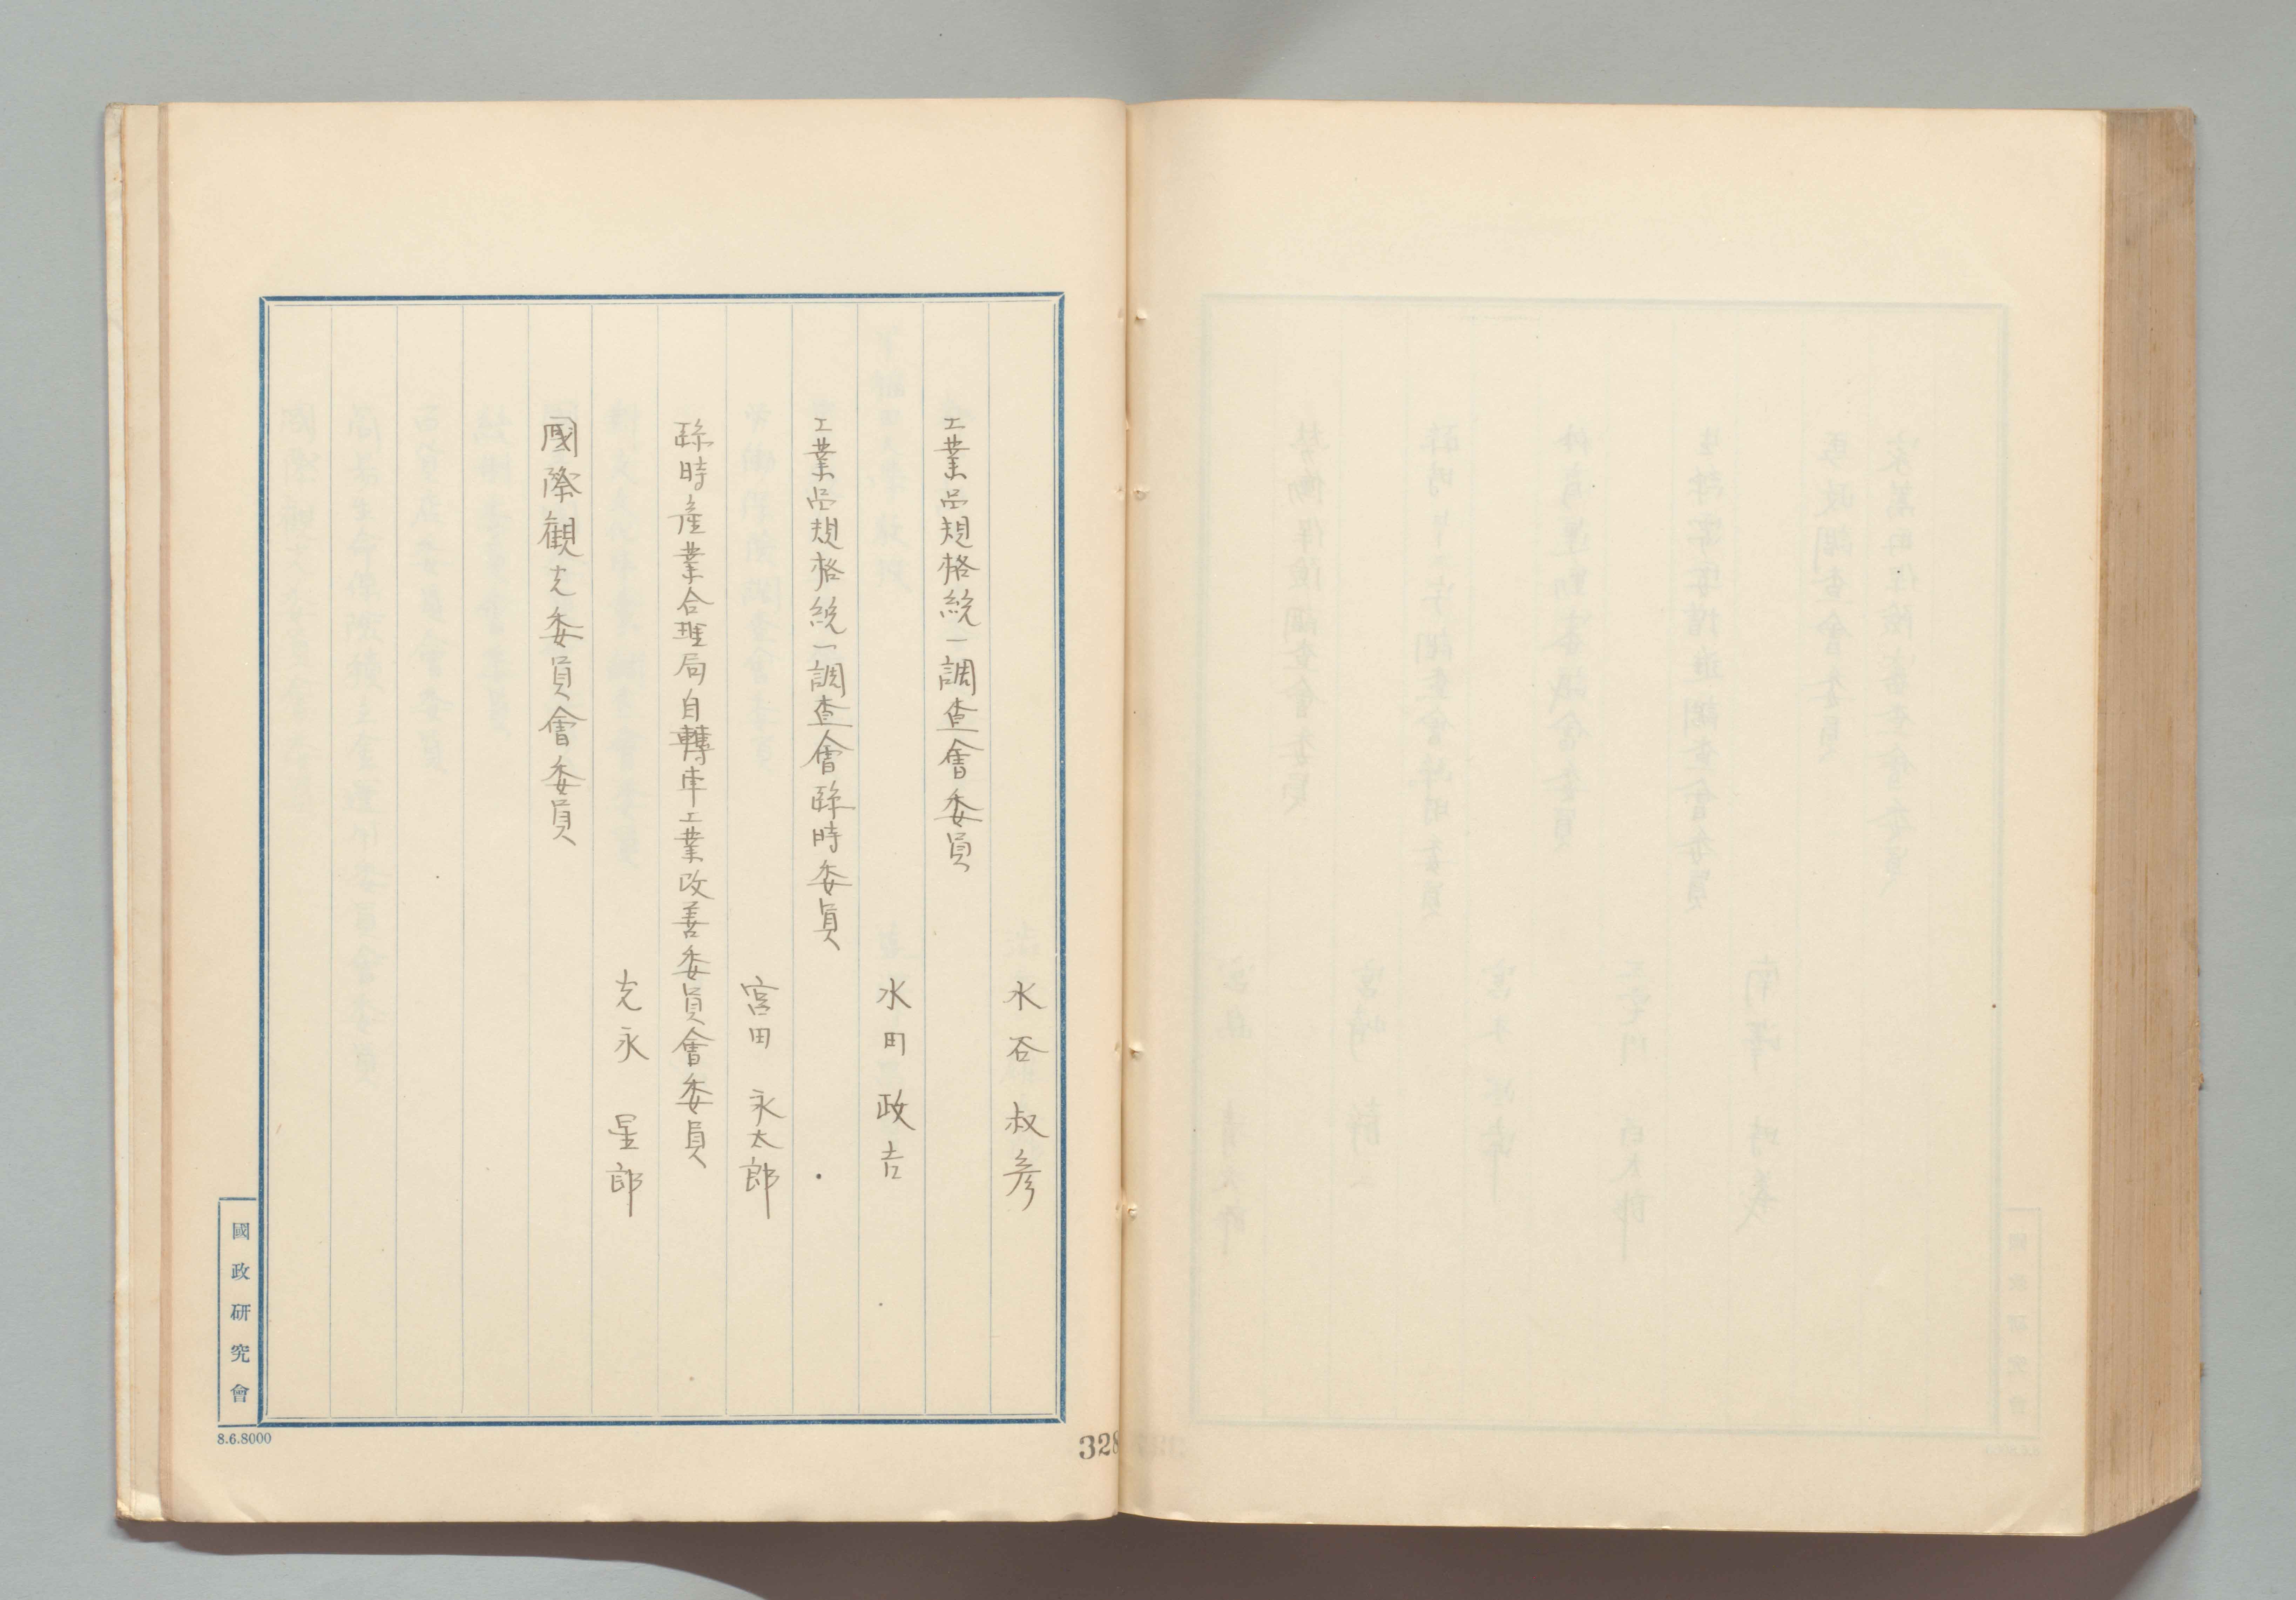 水谷叔彦
工業品規格統一調査會委員
水田政吉
工業品規格統一調査會臨時委員
宮田 永太郎
臨時産業合理局自轉車工業改善委員會委員
光永 星郎
國際観光委員會委員
國政研究會
8.6.8000
328